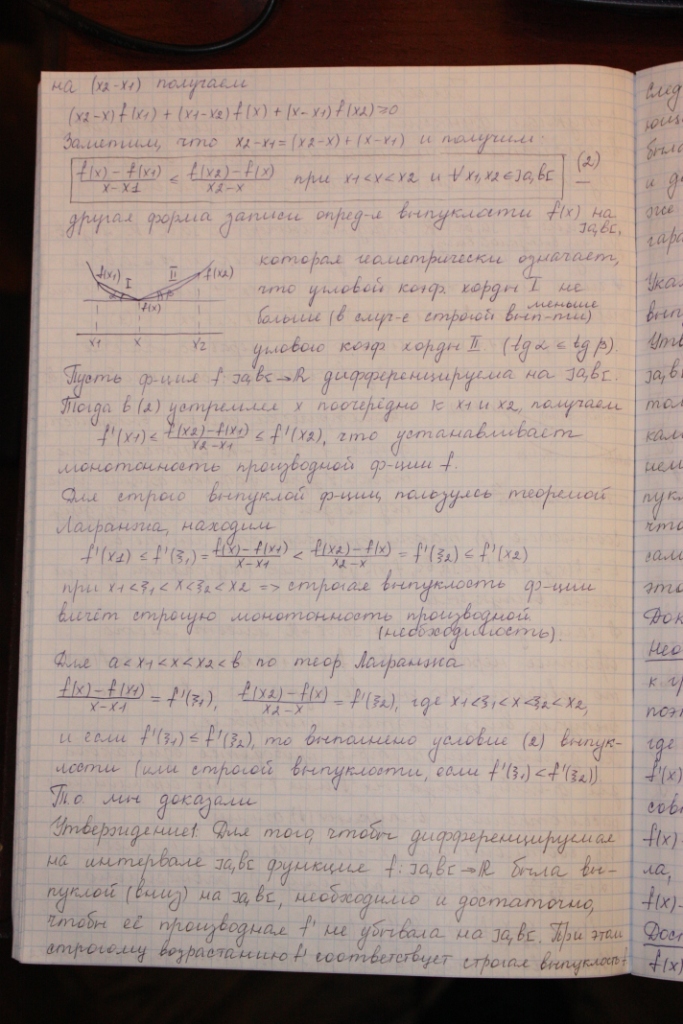 на (x2-x1) получаем
(x2-x)f(x1) + (x1-x2)f(x) + (x-x1)f(x2) ≥ 0
Заметим, что x2-x1=(x2-x)+(x-x1) и получим
(f(x)-f(x1))/(x-x1) ≤ (f(x2)-f(x))/(x2-x) при x1<x<x2 и ∀x1,x2∈]a,b[ (2)
другая форма записи опред-я выпуклости f(x) на
]a,b[,
которая геометрически означает,
что угловой коэф. хорды I не
больше (в случ-е строгой вып-ти меньше)
углового коэф хорды II. (tgα ≤ tgβ).
f(x1) I II f(x2)
α β
f(x)
x1 x x2
Пусть ф-ция f: ]a,b[→R дифференцируема на ]a,b[.
Тогда в (2) устремляя x поочерёдно к x1 и x2, получаем
f'(x1) ≤ (f(x2)-f(x1))/(x2-x1) ≤ f'(x2), что устанавливает
монотонность производной ф-ции f.
Для строго выпуклой ф-ции, пользуясь теоремой
Лагранжа, находим
f'(x1) ≤ f'(ξ1) = (f(x)-f(x1))/(x-x1) < (f(x2)-f(x))/(x2-x) = f'(ξ2) ≤ f'(x2)
при x1<ξ1<x<ξ2<x2 => строгая выпуклость ф-ции
влечёт строгую монотонность производной
(необходимость).
Для a<x1<x<x2<b по теор. Лагранжа
(f(x)-f(x1))/(x-x1) = f'(ξ1), (f(x2)-f(x))/(x2-x) = f'(ξ2), где x1<ξ1<x<ξ2<x2,
и если f'(ξ1) ≤ f'(ξ2), то выполнено условие (2) выпук-
лости (или строгой выпуклости, если f'(ξ1)<f'(ξ2))
Т.о. мы доказали
Утверждение1. Для того, чтобы дифференцируемая
на интервале ]a,b[ функция f: ]a,b[→R была вы-
пуклой (вниз) на ]a,b[, необходимо и достаточно,
чтобы её производная f' не убывала на ]a,b[. При этом
строгому возрастанию f' соответствует строгая выпуклость f
след
была
и до
же
гара
Указ
вып
Утв
]a,b[
тол
кас
нем
пук
что
сам
это
Док
Нео
к гр
поэт
где
f'(x)
совп
f(x)
ла,
f(x)-
Дост
f(x)